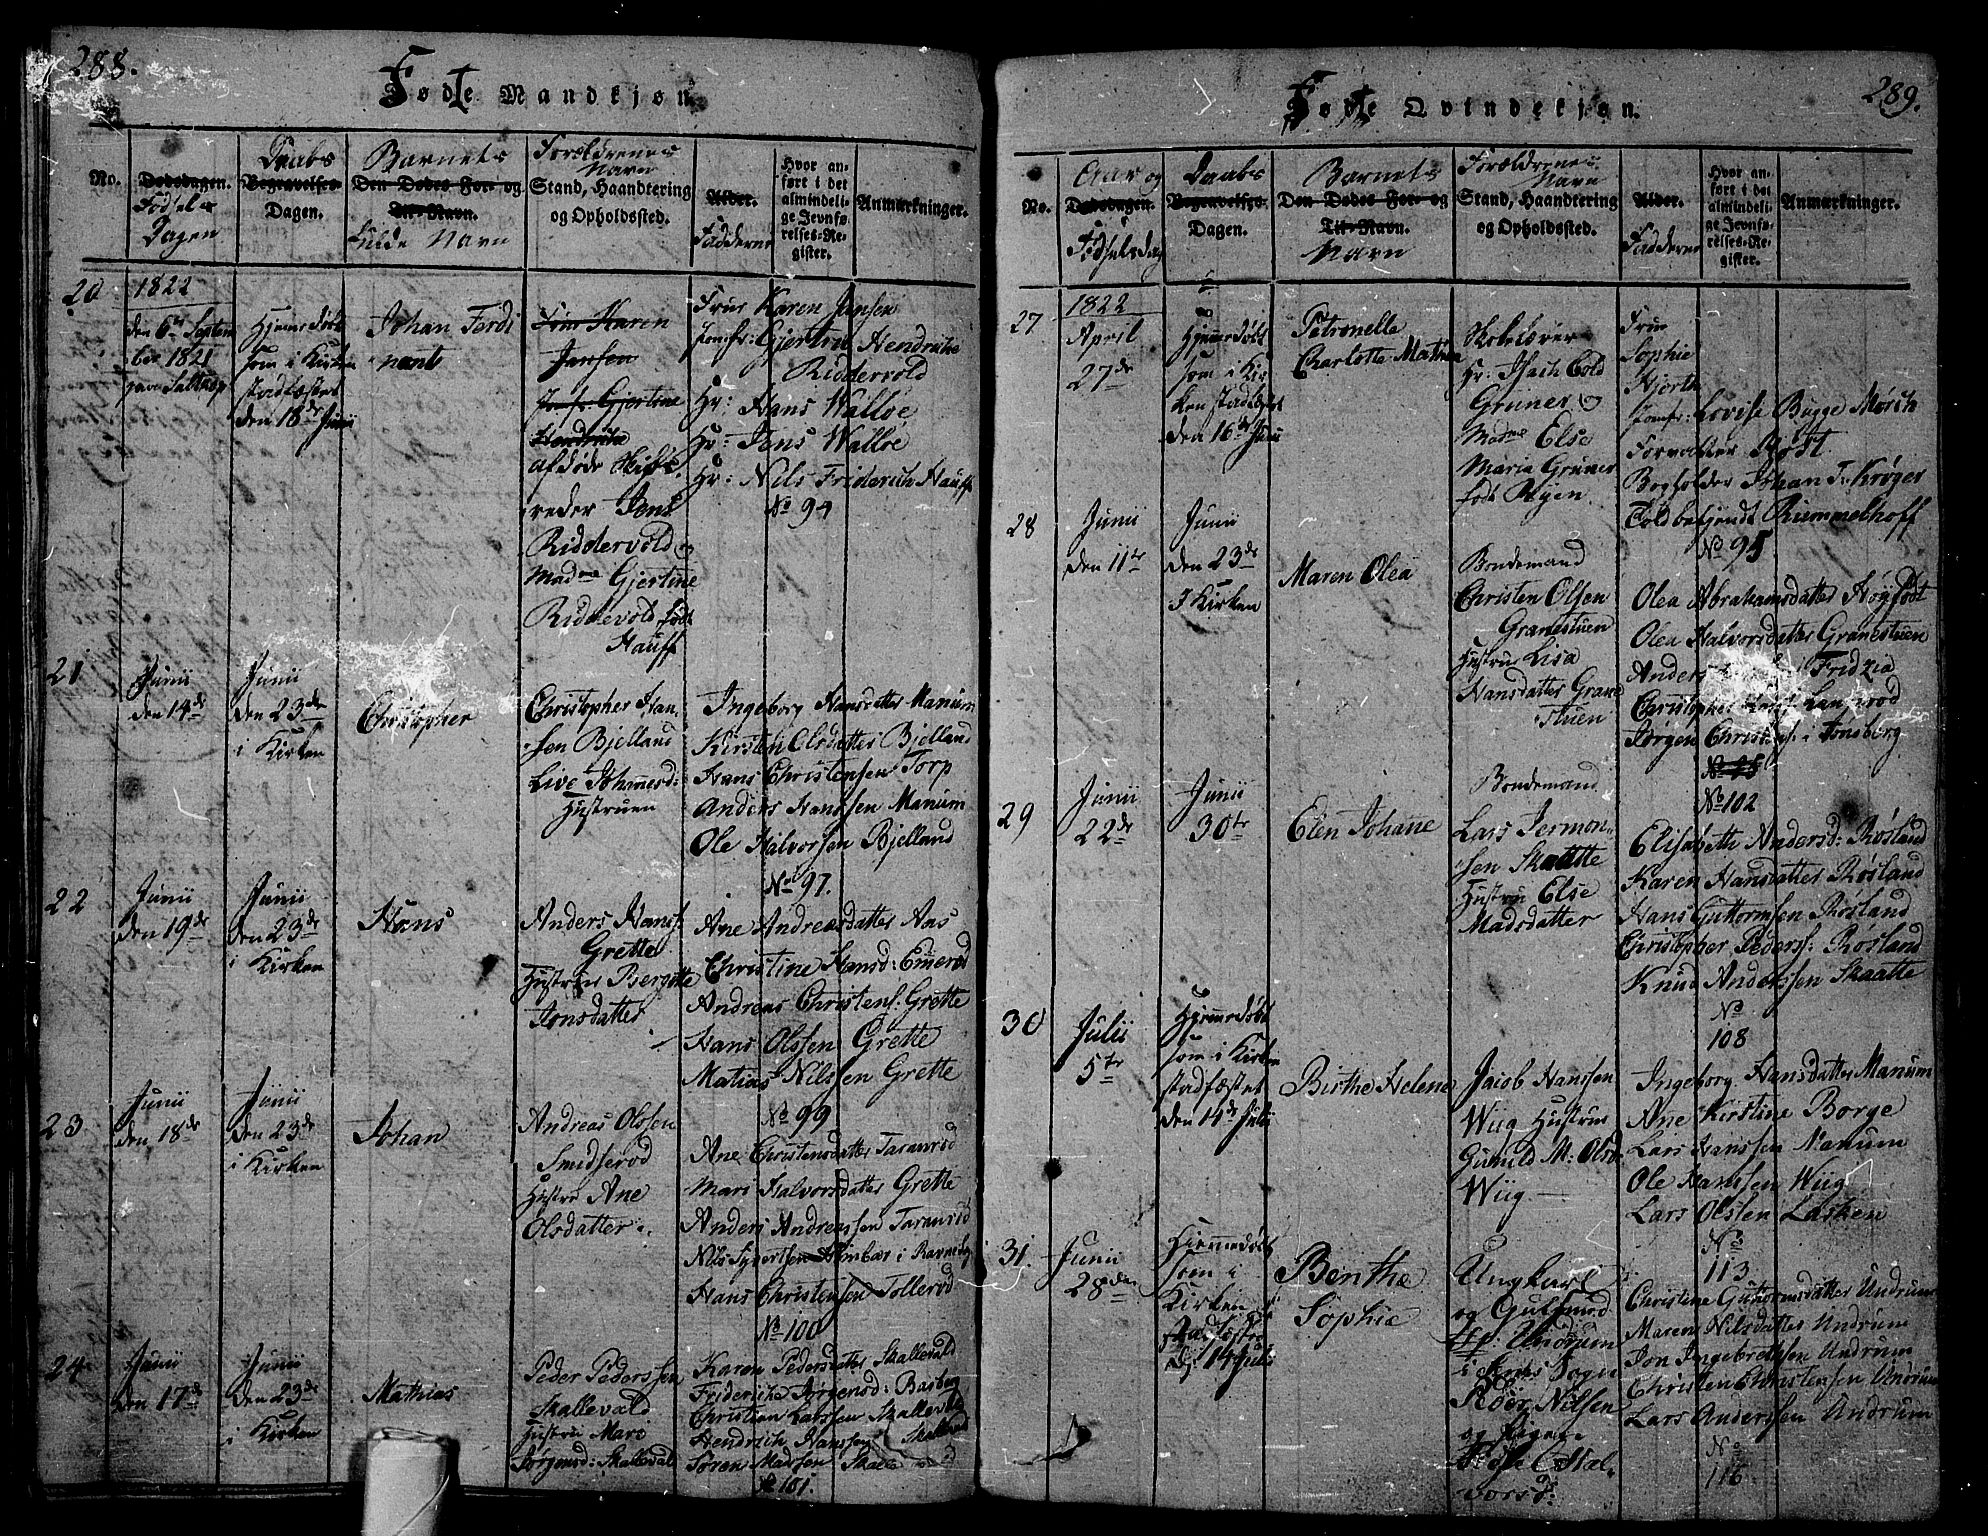 288.
Fødte Mandkjøn
No.
Dødsdagen.
Fødsels
Dagen
Daabs
Begravelses-
Dagen.
Barnets
Den Dødes For- og
Til-Navn.
fulde Navn
Forældrenes
Navn
Stand, Haandtering
og Opholdssted.
Alder.
Fadderne
Hvor an-
ført i det
almindeli-
ge Jevnfø-
relses-Re-
gister.
Anmærkninger.
20
1822
den 6te Septem
ber 1821
Hjemmedøbt
som i Kirken
stadfæstet
den 18de Junii
Johan Ferdi
nant
Frue Karen
Jansen
Jomfr: Gjertine
Hendrikke
afdøde Skibs
reder Jens
Riddervold og
Madme Gjertine
Riddervold født
Hauff
Frue Karen Jansen
Jomfr: Gjertin Hendrikke
Riddervold
Hr: Hans Walløe
Hr: Jens Walløe
Hr: Nils Friderich Hauff
No 94
21
Junii
den 14de
Junii
den 23de
i Kirken
Christopher
Christopher Han
sen Bjelland
Live Johannesd:
Hustruen
Ingeborg Hansdatter Manum
Kirsten Olsdatter Bjelland
Hans Christensen Torp
Anders Hanssen Manum
Ole Halvorsen Bjelland
No 97.
22
Junii
den 19de
Junii
den 23de
i Kirken
Hans
Anders Hanss.
Grette
Hustrue Bergitte
Jonsdatter
Ane Andreasdatter Aas
Christine Hansd: Emerød
Andreas Christens. Grette
Hans Olssen Grette
Matias Nilssen Grette
No 99
23
Junii
den 18de
Junii
den 23de
i Kirken
Johan
Andreas Olssen
Smidserød
Hustru Ane
Olsdatter
Ane Christensdatter Taranrød
Mari Halvorsdatter Grette
Anders Andreassen Taranrød
Nils Sypertsen
Hans Christensen Tollerød
No 100
24
Junii
den 17de
Junii
den 23de
i Kirken
Mathias
Peder Pederssen
Skallevald
Hustru Mari
Sørgensd: Skallevald
Karen Pedersdatter Skallevald
Friderikke Jørgensd: Basberg
Christian Larssen Skallevold
Hendrich Hanssen Skallevold
Søren Madsen Skalle
No 101.
289.
Fødte Qvindekjøn.
No.
Aar og
Dødsdagen.
Fødselsdag
Daabs
Begravelses-
Dagen.
Barnets
Den Dødes For- og
Til-Navn.
Navn
Forældrenes
Navn
Stand, Haandtering
og Opholdssted.
Alder.
Fadderne
Hvor an-
ført i det
almindeli-
ge Jevnfø-
relses-Re-
gister.
Anmærkninger.
27
1822
April
27de
Hjemmedøbt
som i Kir
ken stadfæstet
den 16de Junii
Petronelle
Charlotte Mathea
Skolelærer
Hr: Isach Cold
Gruner og
Madme Else
Maria Gruner
født Nyen
Frue
Sophie
Hjorth
Jomfr: Lovise Bugge Mørch
Forvalter Røst
Bogholder Johan T. Krøger
Toldbetjendt Rummelhoff
No 95
28
Junii
den 11te
Junii
den 23de
I Kirken
Maren Olea
Bondemand
Christen Olsen
Granestuen
Hustru Lisa
Hansdatter Grane
stuen
Olea Abrahamsdatter Høyfødt
Olea Halvorsdatter Granestuen
Anders Fridzia
Christopher
Jørgen Christens. Tonsberg
No 95
No 102
29
Junii
22de
Junii
30te
Elen Johane
Bondemand
Lars Jermon
sen Skaatte
Hustru Else
Madsdatter
Elisabeth Andersd: Røsland
Karen Hansdatter Røsland
Hans Guttormsen Røsland
Christopher Peders: Røsland
Knud Anderssen Skaatte
No
108
30
Julii
5te
Hjemmedøbt
som i Kirken
stadfæstet
den 14de Julii
Birthe Helene
Jacob Hanssen
Wiig Hustrue
Gunild M: Olsd
Wiig
Ingeborg Hansdatter Manum
Ane Kirstine Borge
Lars Hanssen Manum
Ole Hanssen Wiig
Lars Olsten Lasken
No
113
31.
Junii
28den
Hjemmedøbt
som i
Kirken
stadfæstet
d: 14 Julii
Benthe
Sophie
Ungkarl
og Gulsmed
Undrum
i Sems Sogn
Roer Nilsen
og Pigen
Else Cathal
torsd:
Christine Guttormsdatter Undrum
Maren Nilsdatter Undrum
Jon Ingebrethsen Undrum
Christen Christensen Undrum
Lars Anderssen Undrum
No
116